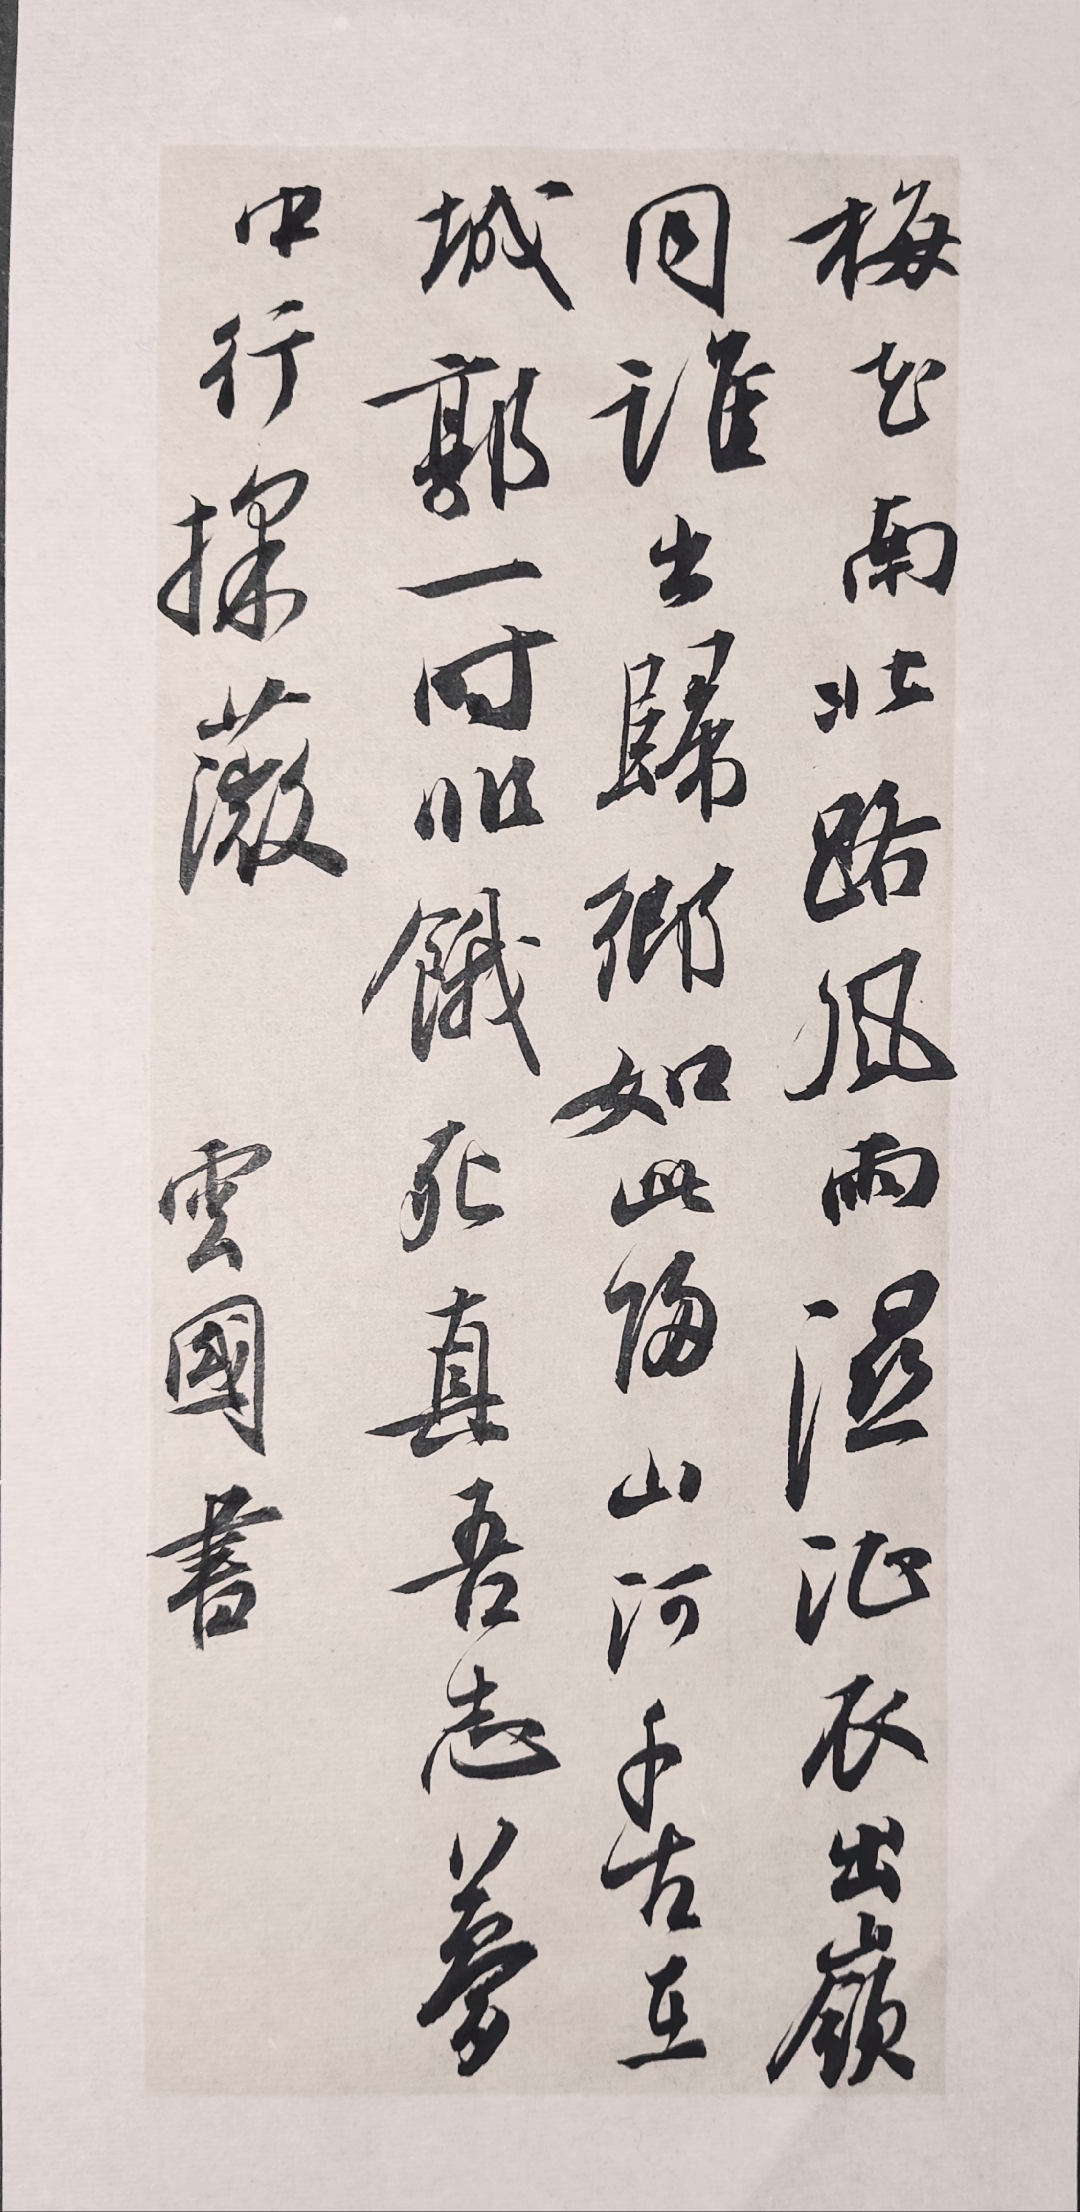 梅花南北路風雨湿征衣出嶺
同誰出歸鄉如此歸山河千古在
城郭一時非餓死真吾志夢
中行採薇 雲國書